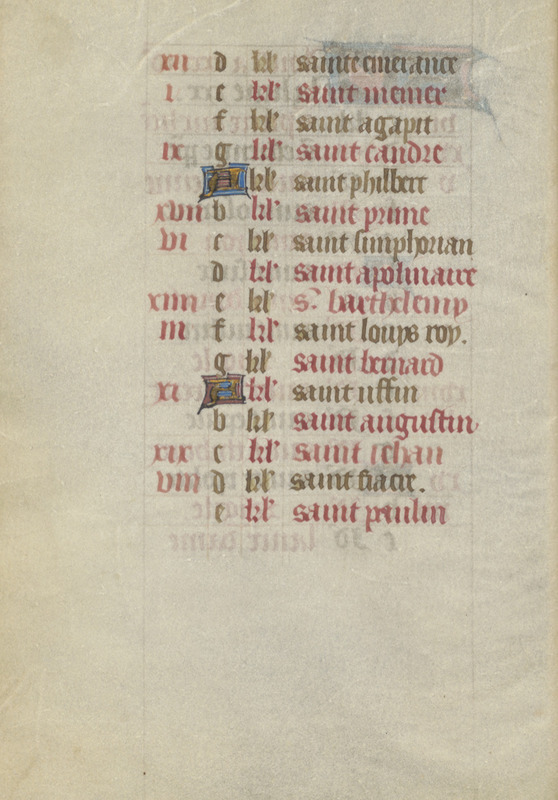 xii d kl' sainte emerance
i e kl' saint memer
f kl' saint agapit
ix g kl' saint candre
A kl' saint philbert
xvii b kl' saint prime
vi c kl' saint simphorian
d kl' saint apolinaire
xiiii e kl' s. barthelemy
iii f kl' saint louys roy.
g kl' saint bernard
xi A kl' saint uffin
b kl' saint augustin
xix c kl' saint iehan
viii d kl' saint fiacre.
e kl' saint paulin